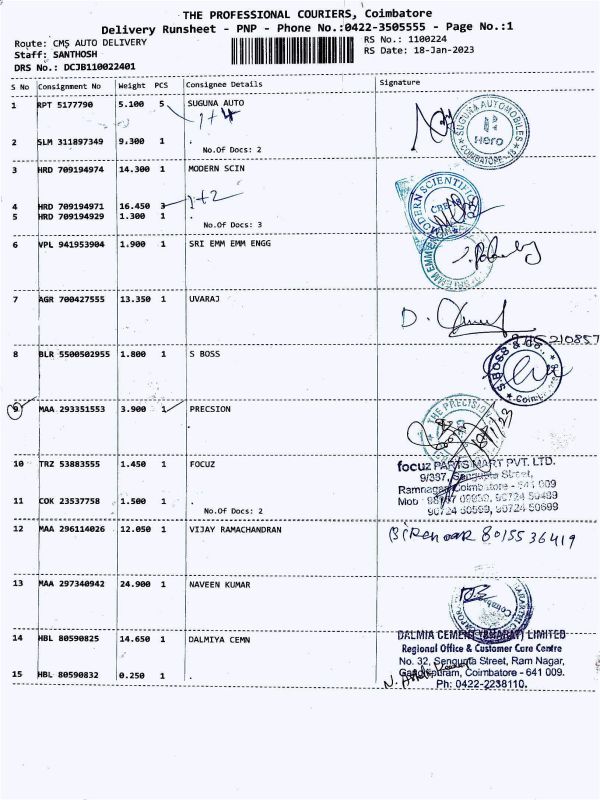 THE PROFESSIONAL COURIERS, Coimbatore
Delivery Runsheet - PNP - Phone No.:0422-3505555 - Page No.:1
Route: CMS AUTO DELIVERY
RS No.: 1100224
Staff: SANTHOSH
RS Date: 18-Jan-2023
DRS No.: DCJB110022401
S No Consignment No Weight PCS Consignee Details Signature
1 RPT 5177790 5.100 5 SUGUNA AUTO
1+4
SUGUNA AUTOMOBILES
Hero
COIMBATORE-18
2 SLM 311897349 9.300 1 .
No.Of Docs: 2
3 HRD 709194974 14.300 1 MODERN SCIN
MODERN SCIENTIFIC
4 HRD 709194971 16.450 3
1+2
5 HRD 709194929 1.300 1 .
No.Of Docs: 3
6 VPL 941953904 1.900 1 SRI EMM EMM ENGG
SRI EMM EMM
7 AGR 700427555 13.350 1 UVARAJ
D.
210857
8 BLR 5500502955 1.800 1 S BOSS
S.BOSS & Co.,
Coimb
9 MAA 293351553 3.900 1 PRECSION
.
THE PRECISION
18/1/23
10 TRZ 53883555 1.450 1 FOCUZ
focuz PARTS MART PVT. LTD.
9/387, Sengupta Street,
Ramnagar, Coimbatore - 641 009
11 COK 23537758 1.500 1 .
No.Of Docs: 2
12 MAA 296114026 12.050 1 VIJAY RAMACHANDRAN
8015536419
13 MAA 297340942 24.900 1 NAVEEN KUMAR
14 HBL 80590825 14.650 1 DALMIYA CEMN
DALMIA CEMENT (BHARAT) LIMITED
Regional Office & Customer Care Centre
No. 32, Sengupta Street, Ram Nagar,
Gandhipuram, Coimbatore - 641 009.
Ph: 0422-2238110.
15 HBL 80590832 0.250 1 .